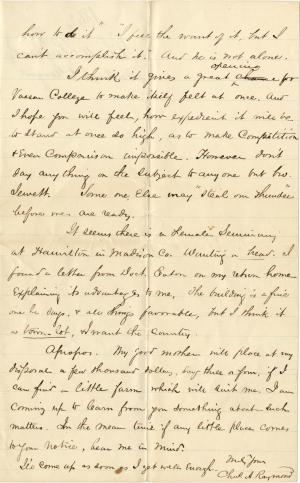 how to do it" "I feel the want of it, but I
can't accomplish it." And he is not alone.
opening
I think it gives a great chance for
Vassar College to make itself felt at once. And
I hope you will feel, how expedient it will be
to stand at once so high, as to make Competition
& Even Comparison impossible. However don't
say anything on the subject to anyone but Mr.
Jewett. Some one Else may "steal our thunder"
before we are ready.
It seems there is a Female Seminary
at Hamilton in Madison Co. Wanting a head. I
found a letter from Doct. Eaton on my return home
Explaining its advantages to me. The building is a fine
one he says, & all things favorable, but I think it
is
lot, & I want the country.
Apropos. My good mother will place at my
disposal a few thousand dollars, buy there a farm, if I
can find a little farm which will suit me. I am
coming up to learn from you something about such
matters. In the mean time if any little place comes
to your notice, bear me in mind.
I'll come up as soon as I get well enough.
Truly Yours
Chas. A. Raymond